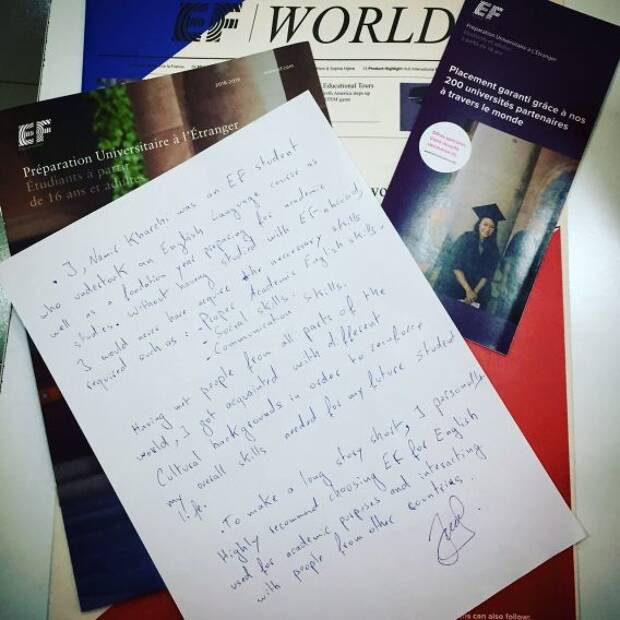 EF
WORLD
Educational Tours
2018-2019
EF
Préparation Universitaire à l'Étranger
Étudiants à partir
de 16 ans et adultes
EF
Préparation Universitaire à l'Étranger
Étudiants et adultes
à partir de 16 ans
Placement garanti grâce à nos
200 universités partenaires
à travers le monde
. I, Namir Kharchi was an EF student
who undertook an English Language course as
well as a fondation year preparing for academic
studies. without having studied with EF-abroad,
I would never have acquire the necessary skills
required such as: - Proper Academic English skills.
- Social skills.
- Communication skills.
Having met people from all parts of the
world, I got acquainted with different
Cultural backgrounds in order to reinforce
my overall skills needed for my future student
life.
. To make a long story short, I personally
Highly recommend choosing EF for English
used for academic purposes and interacting
with people from other countries.
can also follow: